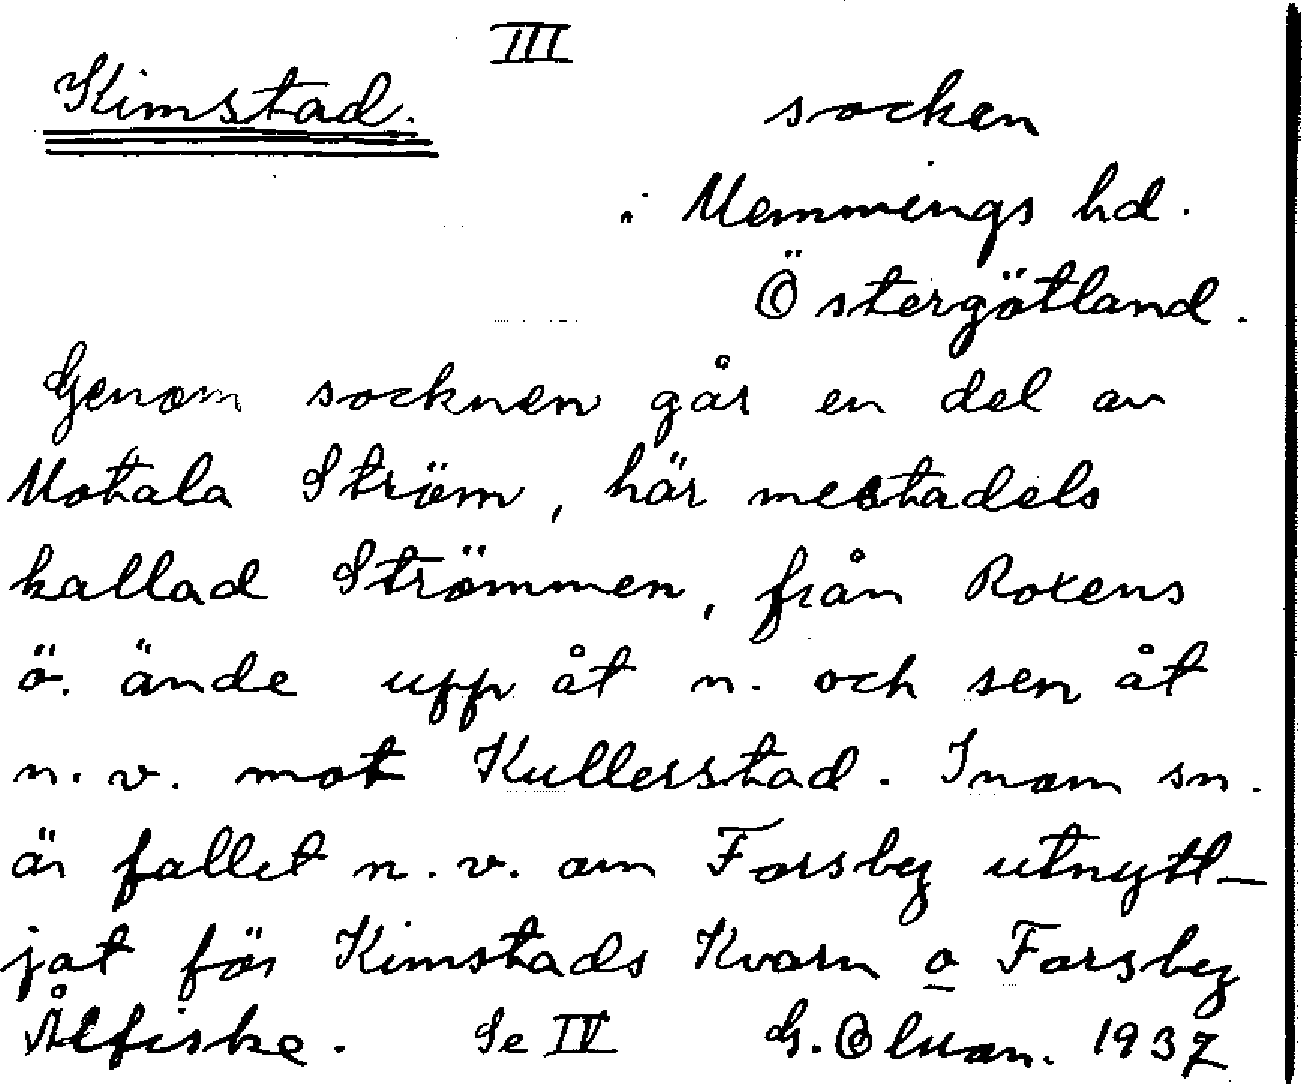 III
Kimstad.
socken
i Memmings hd.
Östergötland.
Genom socknen går en del av
Motala Ström, här mestadels
kallad Strömmen, från Roxens
ö. ände upp åt n. och sen åt
n.v. mot Kullerstad. Inom sn.
är fallet n.v. om Forsby utnytt-
jat för Kimstads Kvarn o Forsby
Ålfiske. Se IV G. Olson. 1937